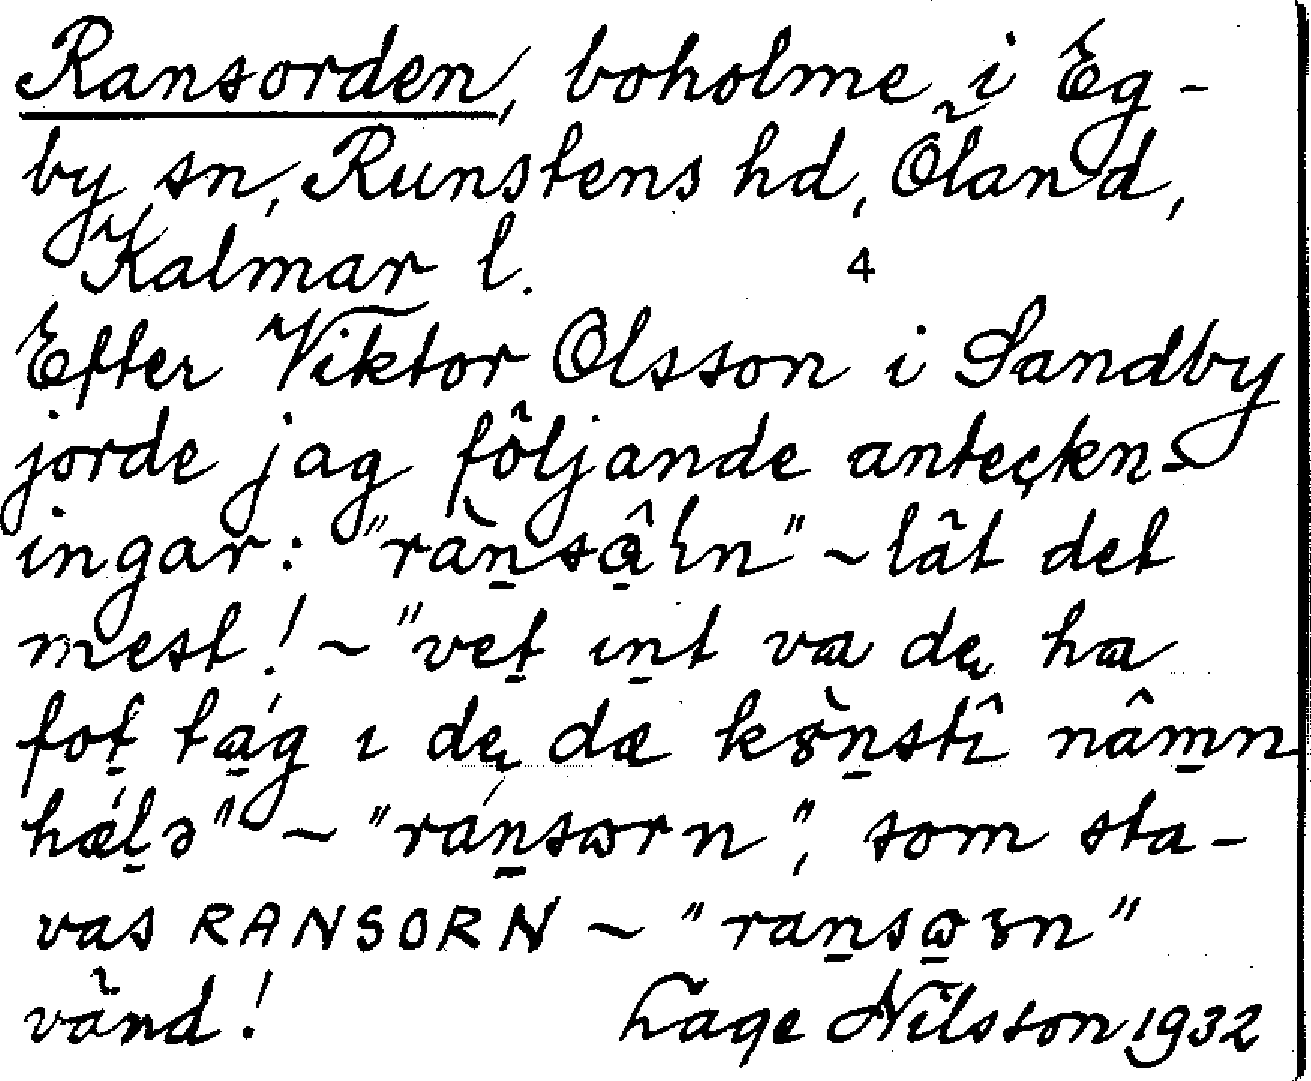 Ransorden, boholme i Eg-
by sn, Runstens hd, Öland,
Kalmar l. 4
Efter Viktor Olsson i Sandby
jorde jag följande anteckn-
ingar: "rànsâɭn" ~ lät det
mest! ~ "vet ınt va dę ha
fot tág ı dę dæ kònstî nâmn
hælə" ~ "ránsorn", som sta-
vas RANSORN ~ "ransɷrn"
vänd! Lage Nilsson 1932